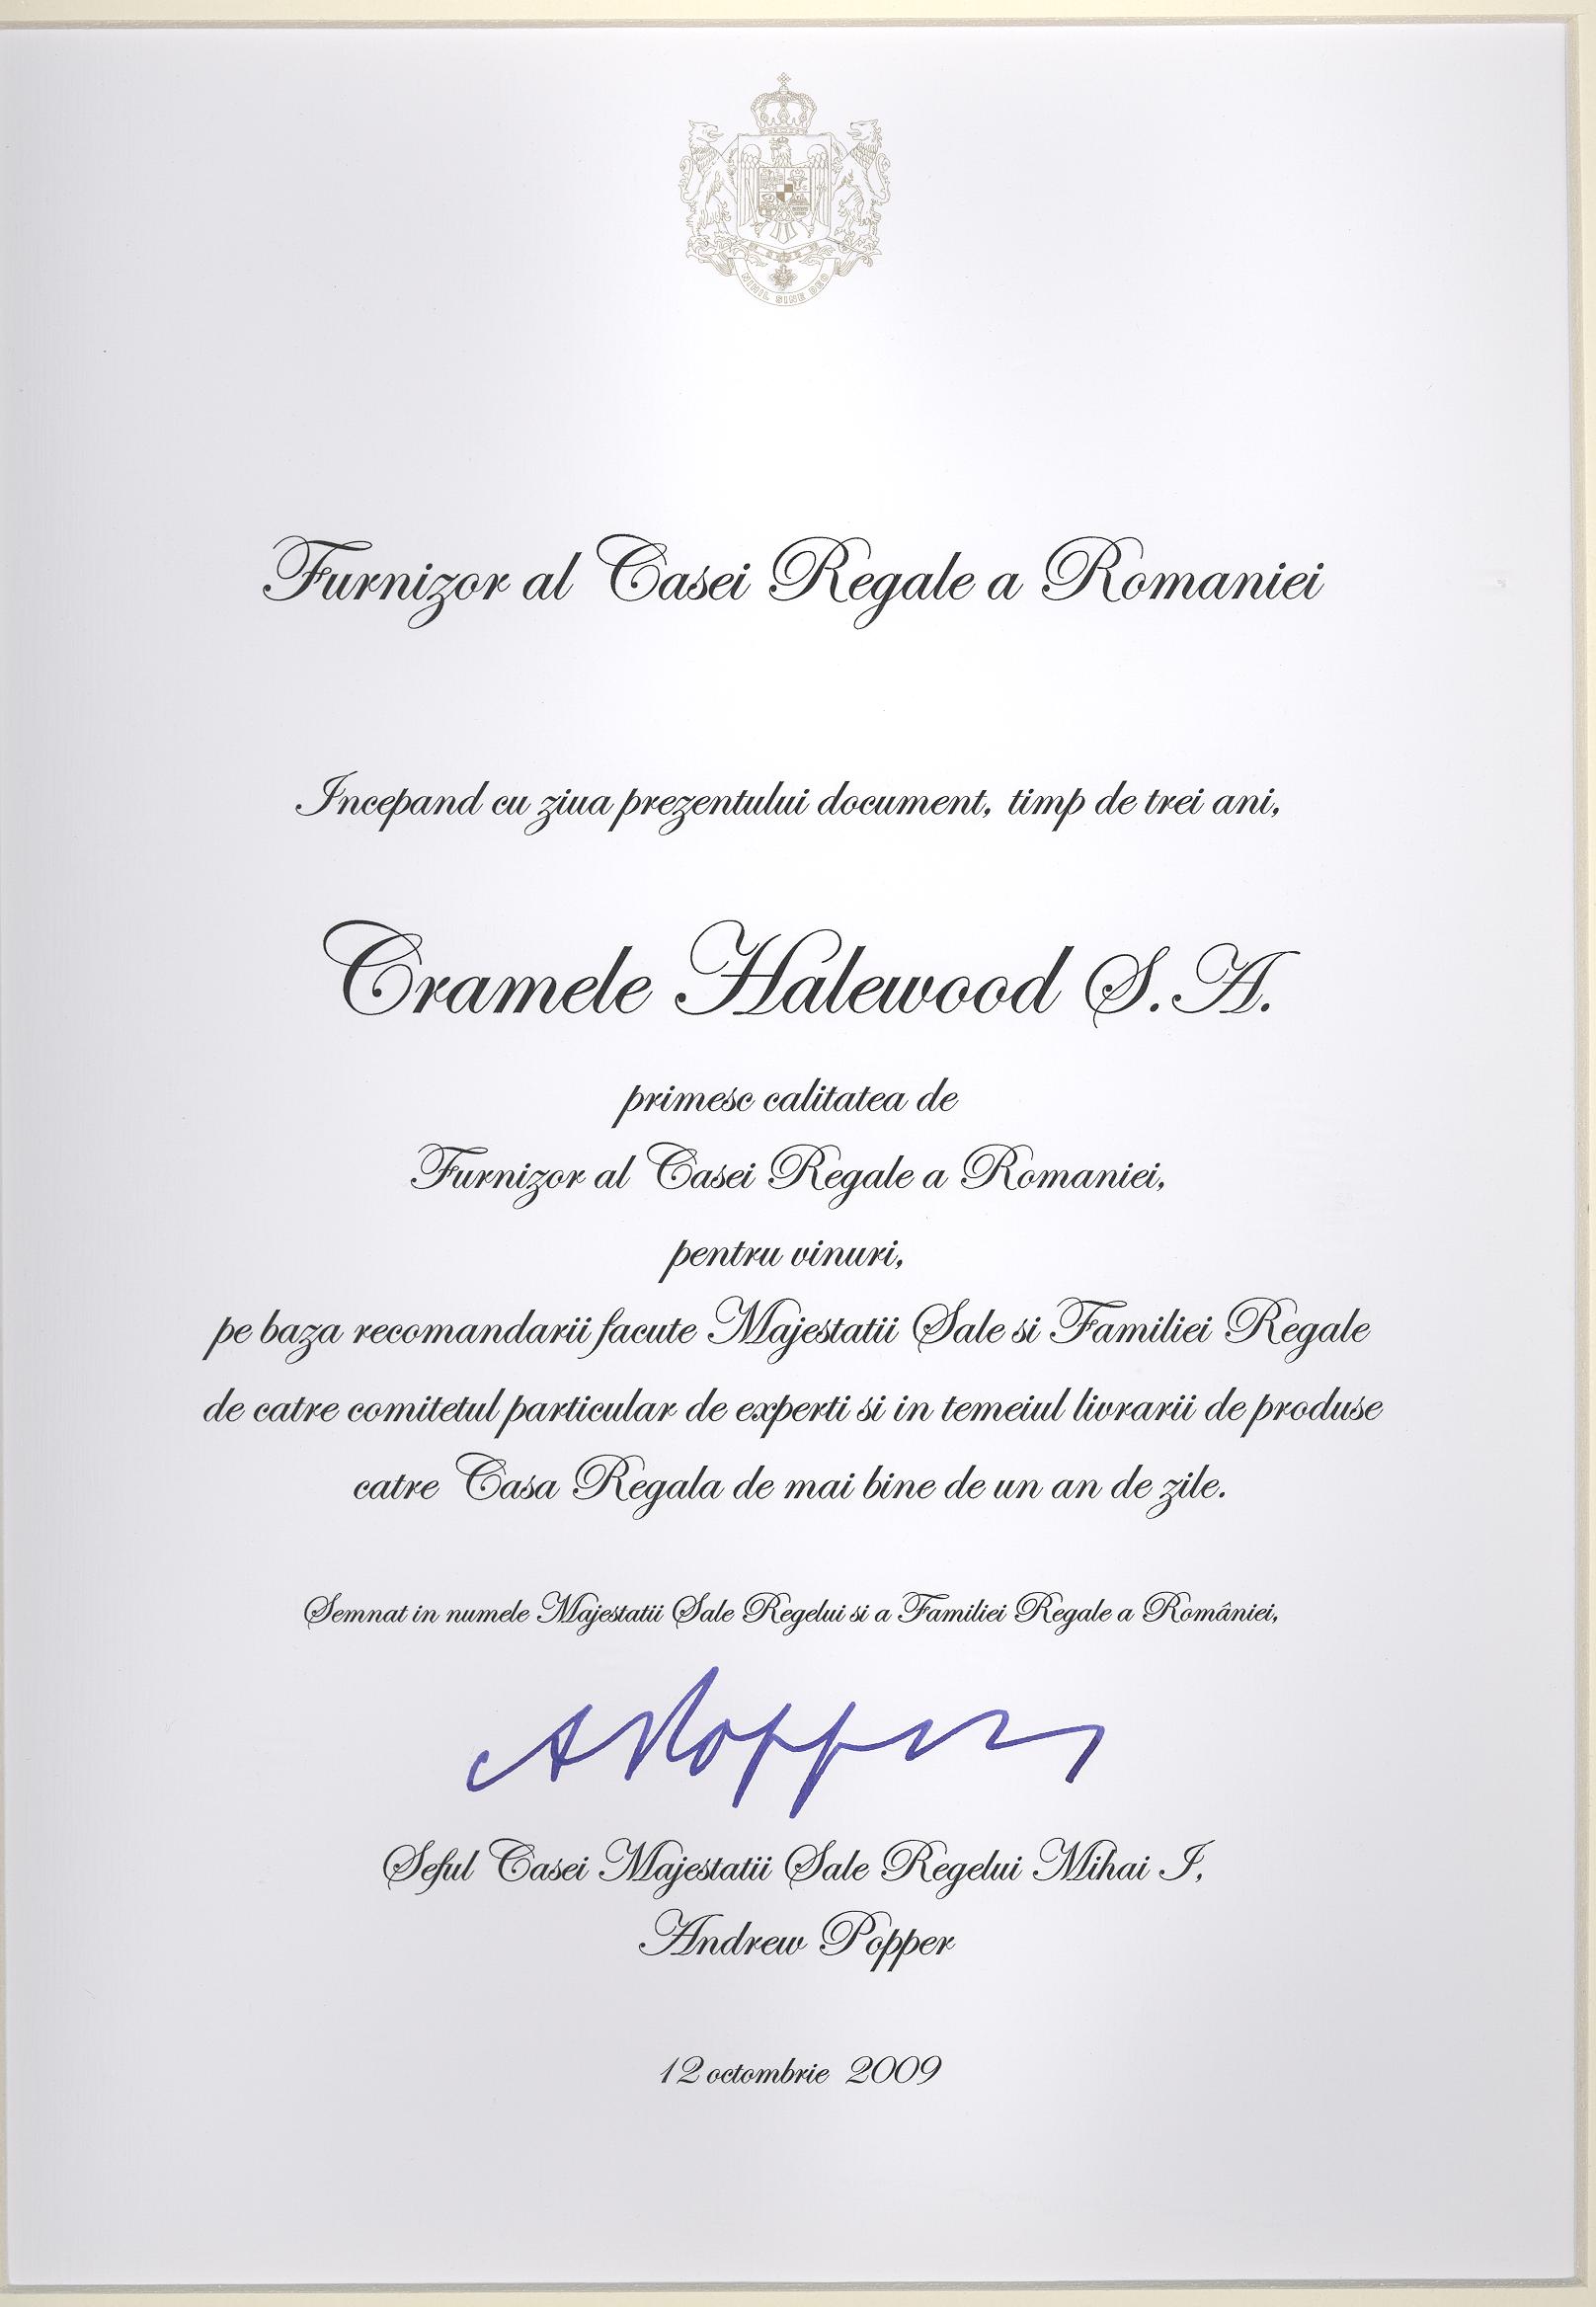 NIHIL SINE DEO
Furnizor al Casei Regale a Romaniei
Incepand cu ziua prezentului document, timp de trei ani,
Cramele Halewood S.A.
primesc calitatea de
Furnizor al Casei Regale a Romaniei,
pentru vinuri,
pe baza recomandarii facute Majestatii Sale si Familiei Regale
de catre comitetul particular de experti si in temeiul livrarii de produse
catre Casa Regala de mai bine de un an de zile.
Semnat in numele Majestatii Sale Regelui si a Familiei Regale a României,
APopper
Seful Casei Majestatii Sale Regelui Mihai I,
Andrew Popper
12 octombrie 2009